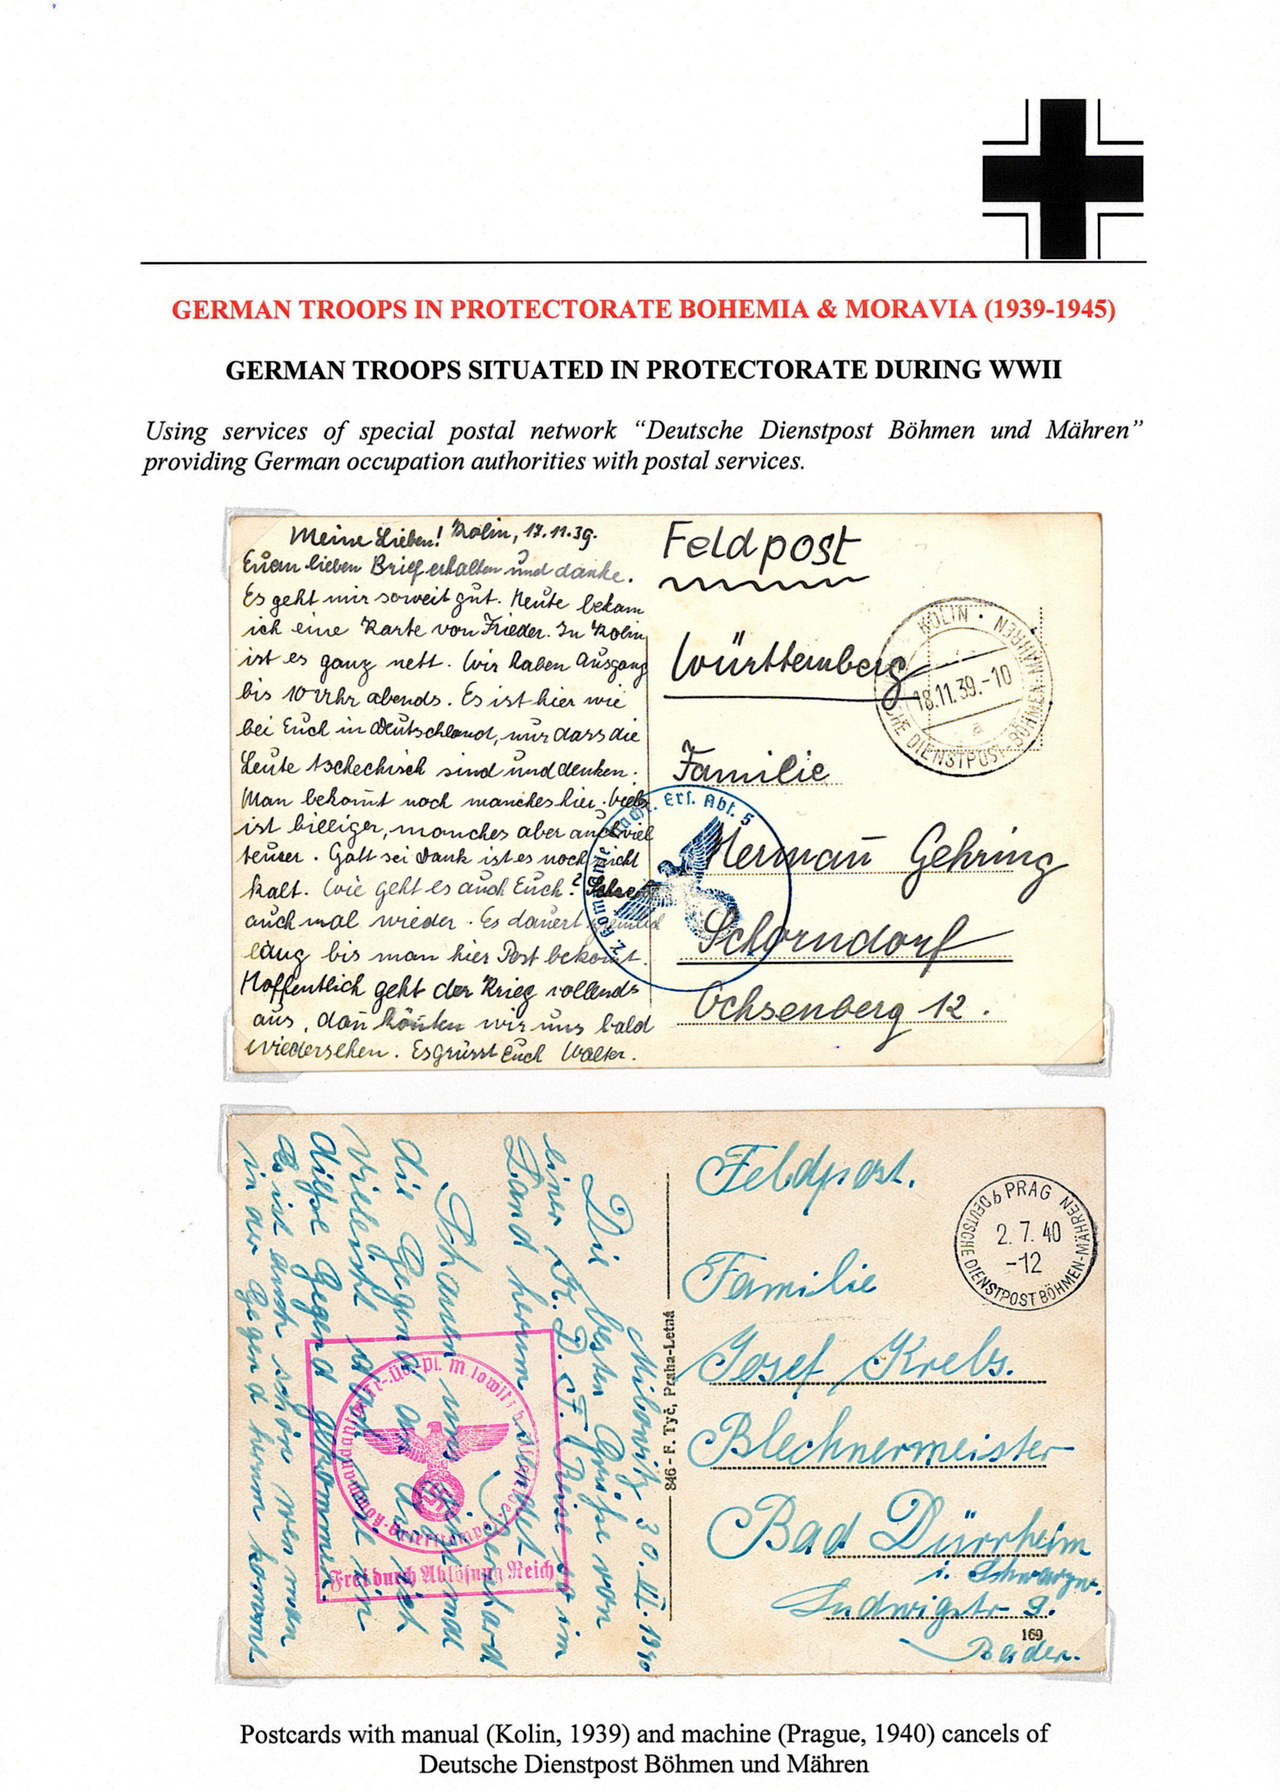 GERMAN TROOPS IN PROTECTORATE BOHEMIA & MORAVIA (1939-1945)
GERMAN TROOPS SITUATED IN PROTECTORATE DURING WWII
Using services of special postal network “Deutsche Dienstpost Böhmen und Mähren”
providing German occupation authorities with postal services.
Meine Lieben! Kolin, 17.11.39.
Euern lieben Brief erhalten und danke.
Es geht mir soweit gut. Heute bekam
ich eine Karte von Frieder. In Kolin
ist es ganz nett. Wir haben Ausgang
bis 10 Uhr abends. Es ist hier wie
bei Euch in Deutschland, nur dass die
Leute tschechisch sind und denken.
Man bekom̄t noch manches hier. Vieles
ist billiger, manches aber auch viel
teurer. Gott sei Dank ist es noch nicht
kalt. Wie geht es auch Euch?
auch mal wieder. Es dauert ziemlich
lang bis man hier Post bekom̄t.
Hoffentlich geht der Krieg vollends
aus, dan̄ kön̄ten wir uns bald
wiedersehen. Es grüsst Euch Walter.
Feldpost
Württemberg
Familie
Herman̄ Gehring
Schorndorf
Ochsenberg 12.
KOLIN · MÄHREN
18.11.39.-10
a
DIENSTPOST BÖHMEN-MÄHREN
2. Kompanie Nachr. Ers. Abt. 5
Feldpost.
Familie
Josef Krebs.
Blechnermeister
Bad Dürrheim
i. Schwarzw.
Ludwigstr 9.
Baden.
169
b PRAG
2. 7. 40
-12
DEUTSCHE DIENSTPOST BÖHMEN-MÄHREN
846 - F. Tyč, Praha-Letná
Milowitz 30.VI.1940
Die besten Grüße von
einer K. D. F. Reise so im
Land herum
Schauen uns
die Gegend an
vielleicht
diese Gegend gekommen.
Es ist auch schön wen man
in der Gegend herum kommt
Frei durch Ablösung Reich
Postcards with manual (Kolin, 1939) and machine (Prague, 1940) cancels of
Deutsche Dienstpost Böhmen und Mähren